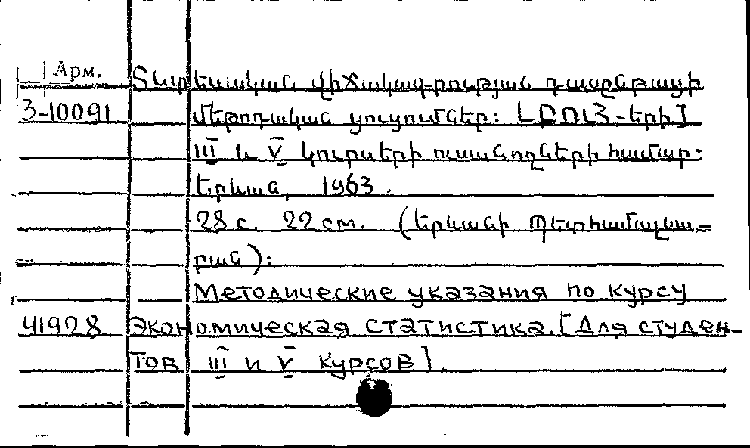 Арм. Տնտեսական վիճակագրության դասընթացի
3-10091 մեթոդական ցուցումներ: [ԲՈՒՀ-երի]
III և V կուրսերի ուսանողների համար:
Երևան, 1963.
28 с. 22 ст. (Երևանի Պետհամալսա-
րան):
Методические указания по курсу
41928 экономическая статистика. [Для студен-
тов III и V курсов].